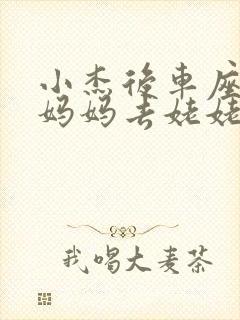 小杰後車座
妈妈去姥姥
我唱大麦茶